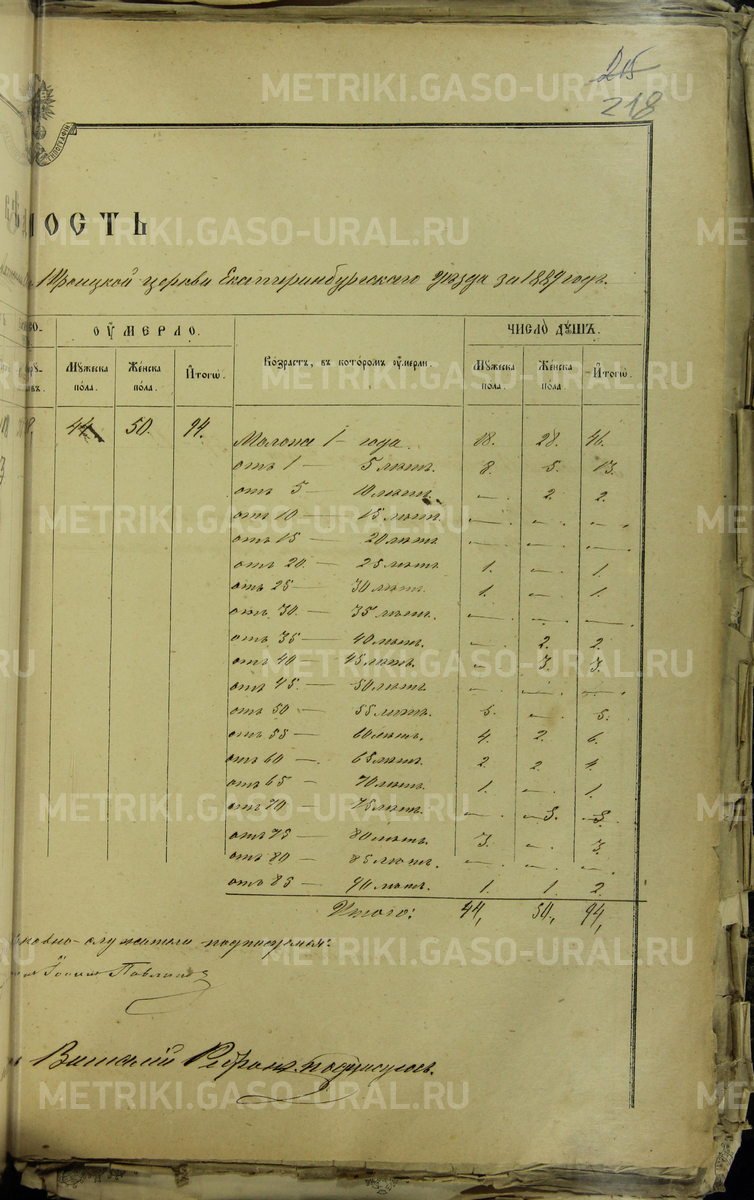 215
218
ТИПОГРАФІИ
МОСТЬ
Троицкой церкви Екатеринбургскаго уѣзда за 1889 годъ.
ОУМЕРЛО.
ЧИСЛО ДУШЪ.
Мужеска пола.
Женска пола.
Итого
Возрастъ, въ которомъ оумерли.
Мужеска пола.
Женска пола.
Итого.
44. 50. 94.
Малолѣ 1 – года. 18. 28. 46.
отъ 1 — 5 лѣтъ. 8. 5. 13.
отъ 5 — 10 лѣтъ — . 2. 2.
отъ 10 — 15 лѣтъ. — . — . — .
отъ 15 — 20 лѣтъ — . — . — .
отъ 20. — 25 лѣтъ 1. — . 1.
отъ 25 — 30 лѣтъ. 1. — . 1.
отъ 30. — 35 лѣтъ. — . — . — .
отъ 35 — 40 лѣтъ. — . 2. 2.
отъ 40 — 45 лѣтъ. — . 3. 3.
отъ 45. — 50 лѣтъ. — . — . — .
отъ 50 — 55 лѣтъ. 5. — . 5.
отъ 55 — 60 лѣтъ. 4. 2. 6.
отъ 60 — . 65 лѣтъ. 2. 2. 4.
отъ 65 — 70 лѣтъ. 1. — . 1.
отъ 70 — 75 лѣтъ. — . 3. 3.
отъ 75 — 80 лѣтъ. 3. — . 3.
отъ 80 — 85 лѣтъ. — . — . — .
отъ 85 — 90 лѣтъ. 1. 1. 2.
Итого: 44, 50, 94,
служители подписуемся:
Павлов
Виталій подписуюсь.
METRIKI.GASO-URAL.RU